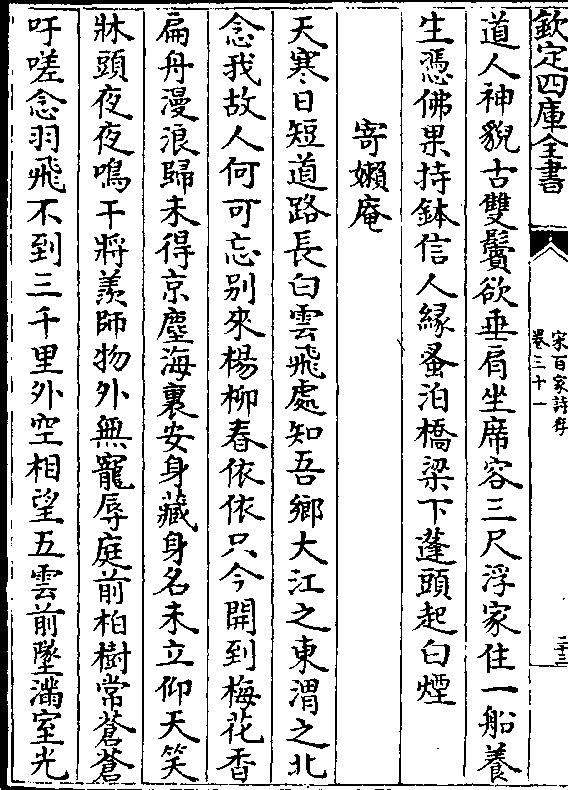 欽定四庫全書
宋百家詩存
卷三十一
二十三
道人神貌古雙鬢欲垂肩坐席容三尺浮家住一船養
生憑佛果持鉢信人緣蚤泊橋梁下蓬頭起白煙
寄嬾庵
天寒日短道路長白雲飛處知吾鄉大江之東渭之北
念我故人何可忘别來楊柳春依依只今開到梅花香
扁舟漫浪歸未得京塵海裏安身藏身名未立仰天笑
牀頭夜夜鳴干將羨師物外無寵辱庭前柏樹常蒼蒼
吁嗟念羽飛不到三千里外空相望五雲前墜滿室光